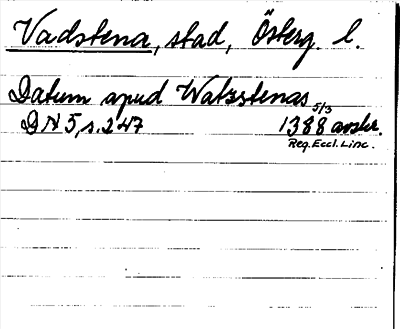 Vadstena, stad, Österg. l.
Datum apud Watzstenas
5/3
DN 5, s. 247 1388 avskr.
Reg. Eccl. Linc.